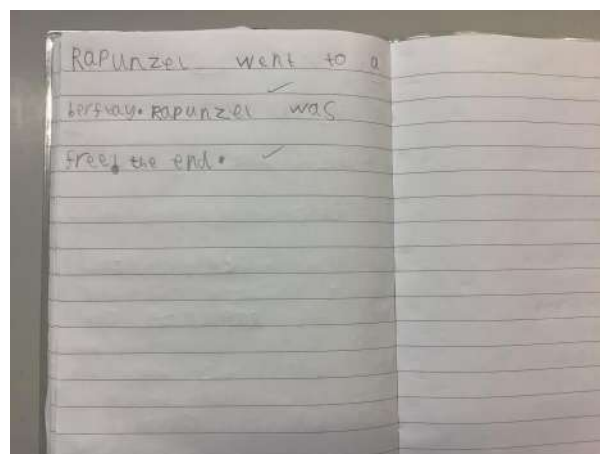 Rapunzel went to a
berfray. Rapunzel was
free. the end.